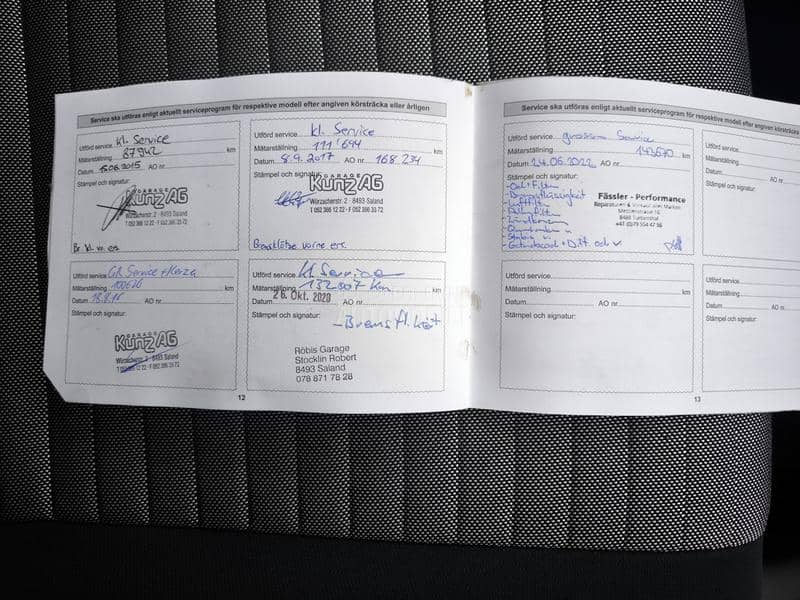 Service ska utföras enligt aktuellt serviceprogram för respektive modell efter angiven körsträcka eller årligen
Utförd service kl. Service
Mätarställning 87942 km
Datum 15.06.2015 AO nr.
Stämpel och signatur:
GARAGE
KÜNZ AG
Würzacherstr. 2 - 8493 Saland
T 052 386 12 22 - F 052 386 33 72
Br kl. vo. ers.
Utförd service kl. Service
Mätarställning 111'694 km
Datum 8.9.2017 AO nr. 168 234
Stämpel och signatur:
GARAGE
KÜNZ AG
Würzacherstr. 2 - 8493 Saland
T 052 386 12 22 - F 052 386 33 72
Bremsklötze vorne ers.
Utförd service GR Service + Kerza
Mätarställning 100620 km
Datum 18.8.16 AO nr.
Stämpel och signatur:
GARAGE
KÜNZ AG
Würzacherstr. 2 - 8493 Saland
T 052 386 12 22 - F 052 386 33 72
Utförd service Kl Service
Mätarställning 132'807 km km
Datum 26. Okt. 2020 AO nr.
Stämpel och signatur:
- Bremsfl.
Röbis Garage
Stocklin Robert
8493 Saland
078 871 78 28
12
Service ska utföras enligt aktuellt serviceprogram för respektive modell efter angiven körsträcka
Utförd service grossen Service
Mätarställning 143670 km
Datum 24.06.2022 AO nr.
Stämpel och signatur:
- Oel + Filter
- Bremsflüssigkeit
- Luftfilter
- Poll. filter
- Zündkerzen
- Getriebeoel + Diff. oel ✓
Fässler - Performance
Reparaturen & Verkauf aller Marken
8488 Turbenthal
+41 (0)79 554 47 56
Utförd service
Mätarställning
Datum
AO nr.
Stämpel och signatur:
Utförd service
Mätarställning km
Datum AO nr.
Stämpel och signatur:
Utförd service
Mätarställning
Datum AO nr.
Stämpel och signatur:
13